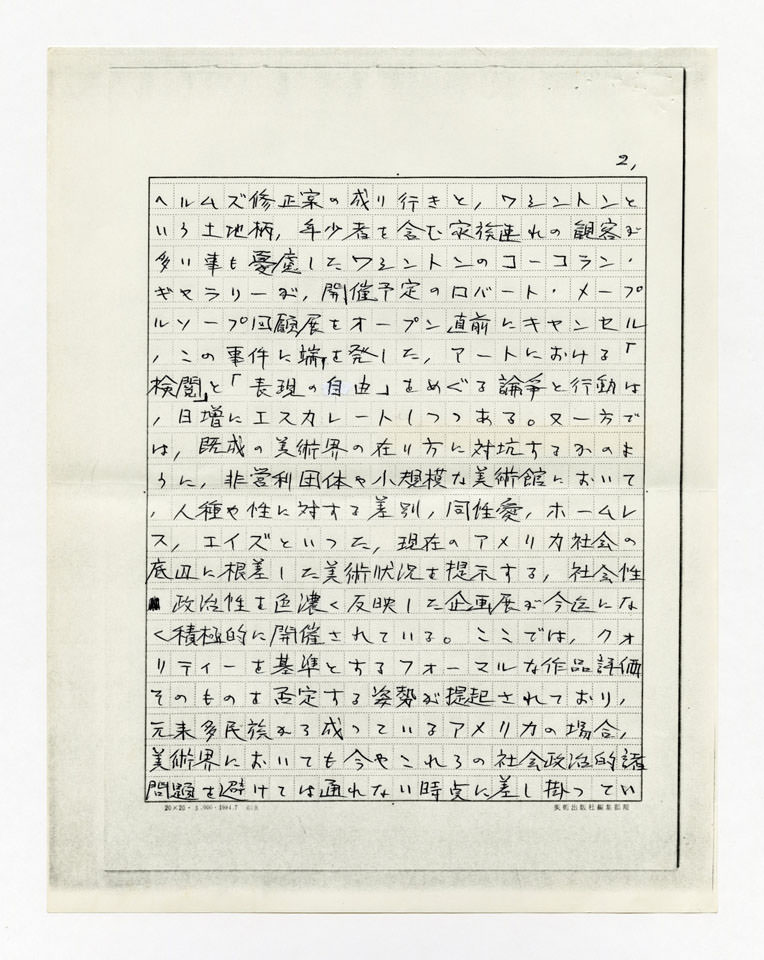 2,
ヘルムズ修正案の成り行きと,ワシントンと
いう土地柄,年少者を含む家族連れの観客が
多い事も憂慮したワシントンのコーコラン・
ギャラリーが,開催予定のロバート・メープ
ルソープ回顧展をオープン直前にキャンセル
,この事件に端を発した,アートにおける「
検閲」と「表現の自由」をめぐる論争と行動は
,日増にエスカレートしつつある。又一方で
は,既成の美術界の在り方に対抗するかのよ
うに,非営利団体や小規模な美術館において
,人種や性に対する差別,同性愛,ホームレ
ス,エイズといった,現在のアメリカ社会の
底辺に根差した美術状況を提示する,社会性
政治性を色濃く反映した企画展が今迄にな
く積極的に開催されている。ここでは,クォ
リティーを基準とするフォーマルな作品評価
そのものを否定する姿勢が提起されており,
元来多民族から成っているアメリカの場合,
美術界においても今やこれらの社会政治的諸
問題を避けては通れない時点に差し掛ってい
20×20・3,000・1984.7
美術出版社編集部用